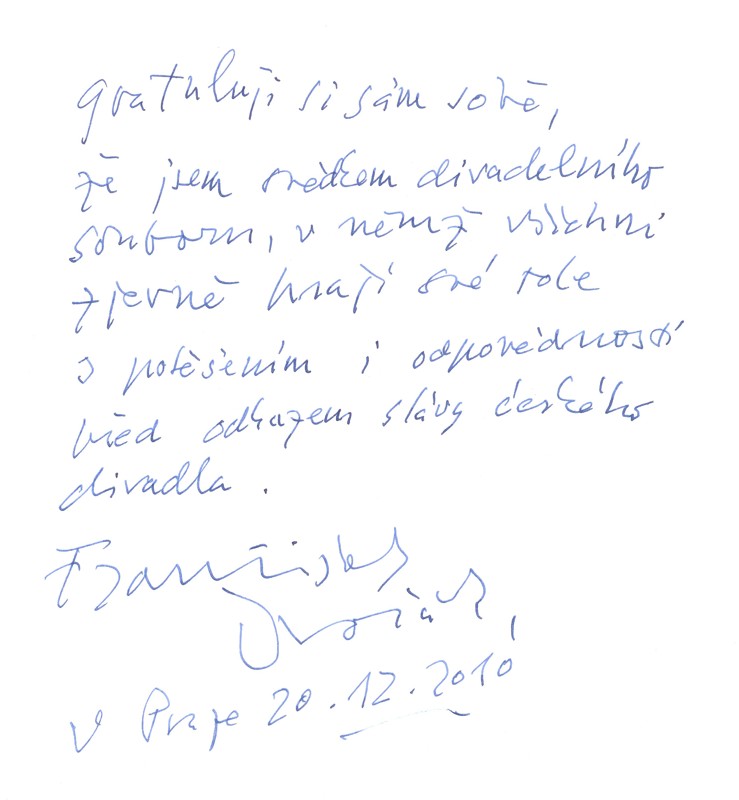 gratuluji si sám sobě,
že jsem svědkem divadelního
souboru, v němž všichni
zjevně hrají své role
s potěšením i odpovědností
před odkazem slávy českého
divadla.
František
Dvořák,
V Praze 20.12.2010